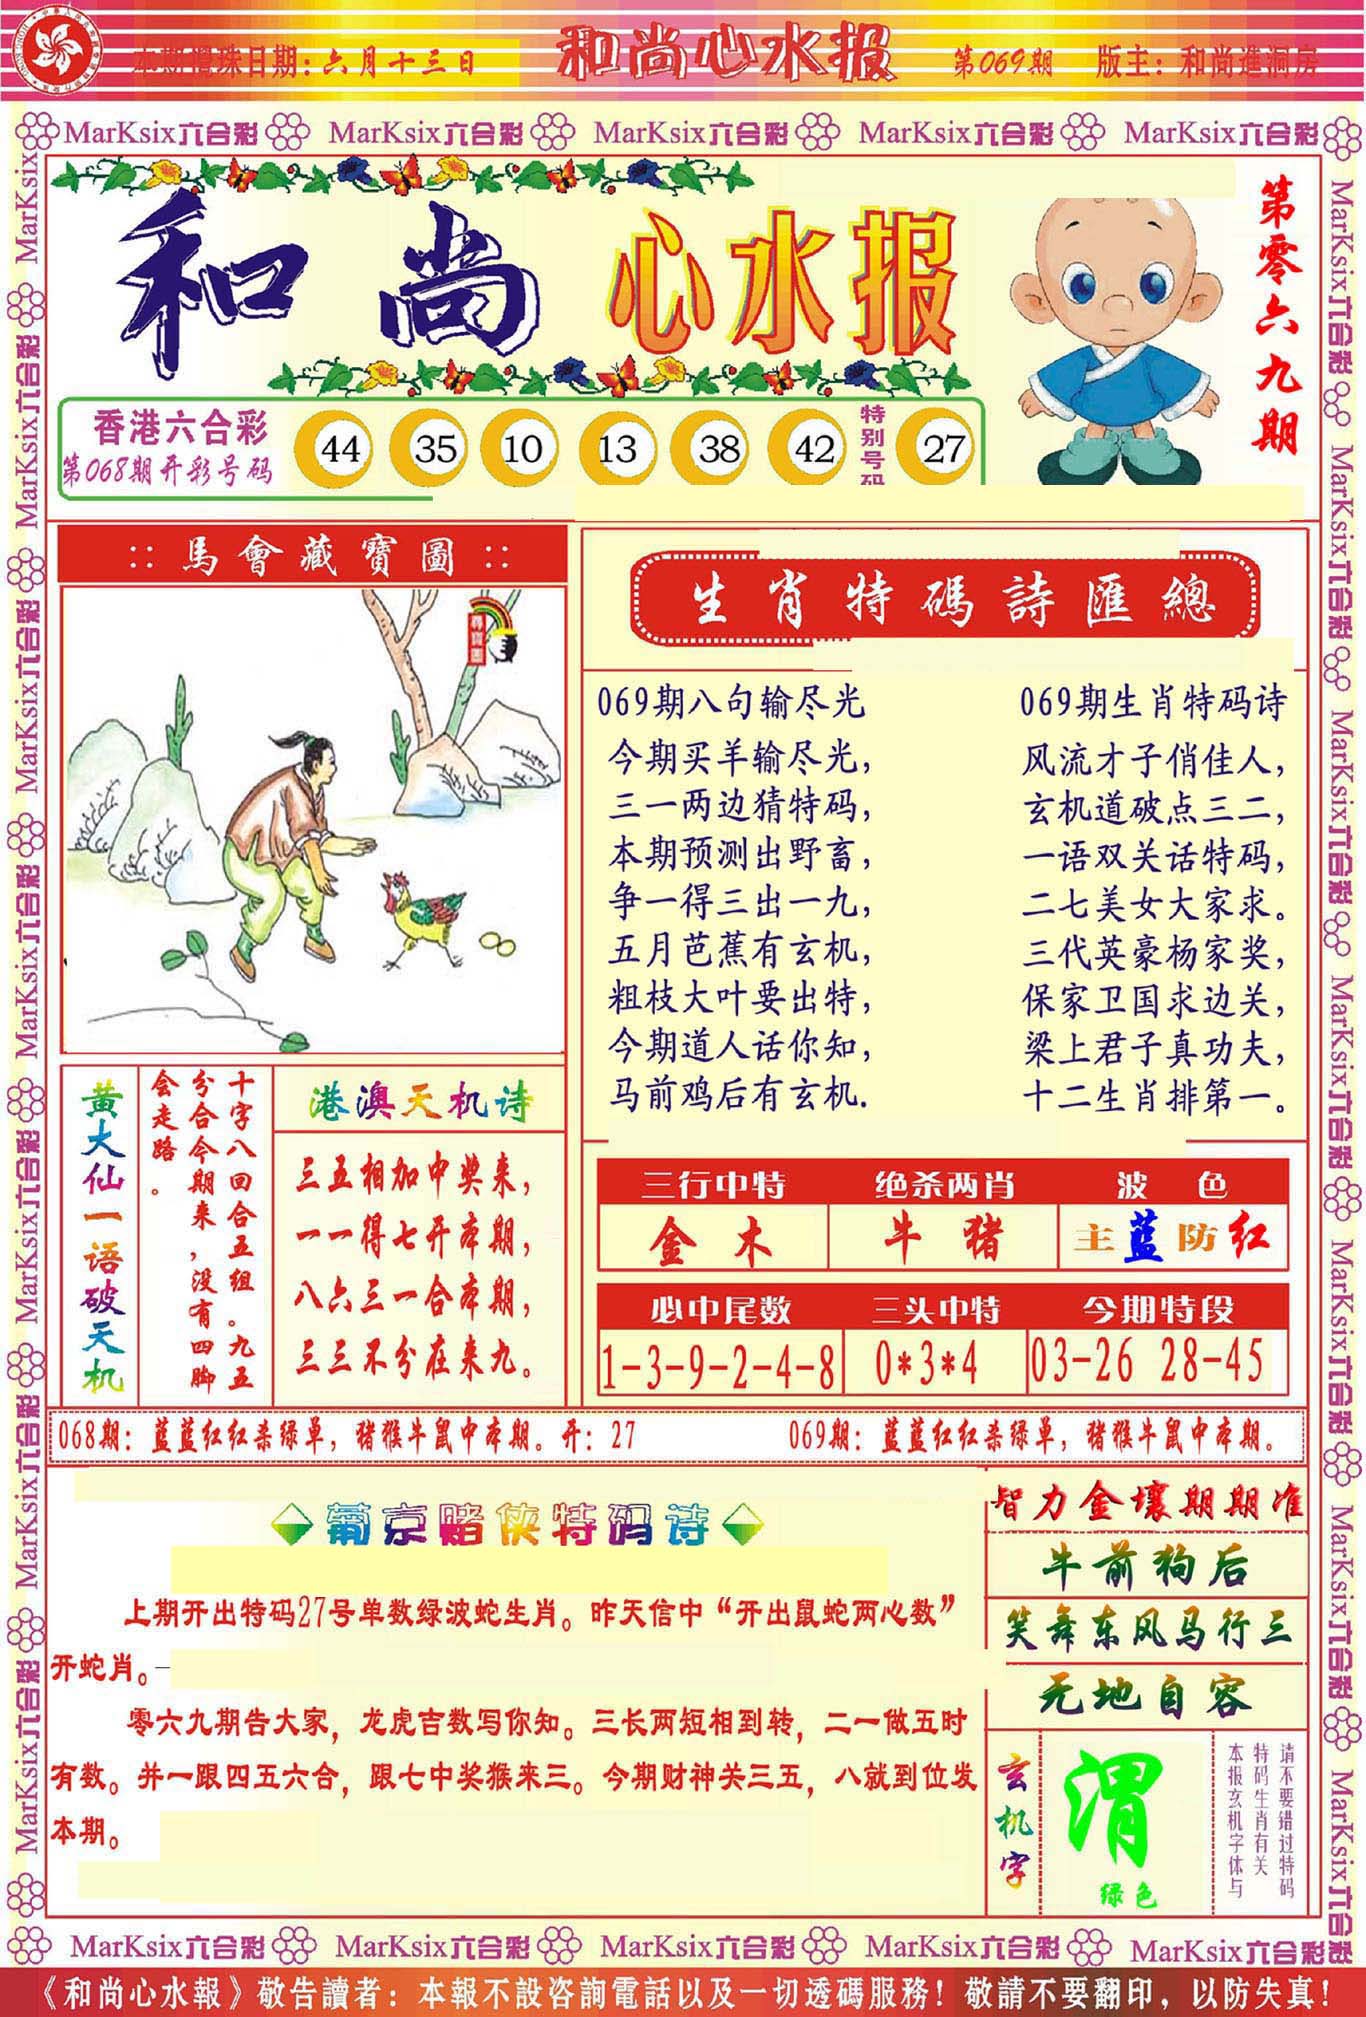 本期攪珠日期：六月十三日
和尚心水报
第069期
版主：和尚進洞房
MarKsix六合彩 MarKsix六合彩 MarKsix六合彩 MarKsix六合彩 MarKsix六合彩
和尚 心水报
第零六九期
香港六合彩
第068期开彩号码
44 35 10 13 38 42
特别号码
27
:: 馬會藏寶圖 ::
生肖特碼詩匯總
069期八句输尽光
今期买羊输尽光，
三一两边猜特码，
本期预测出野畜，
争一得三出一九，
五月芭蕉有玄机，
粗枝大叶要出特，
今期道人话你知，
马前鸡后有玄机.
069期生肖特码诗
风流才子俏佳人，
玄机道破点三二，
一语双关话特码，
二七美女大家求。
三代英豪杨家奖，
保家卫国求边关，
梁上君子真功夫，
十二生肖排第一。
黄大仙一语破天机
十字八回合五组。九五
分合今期来，没有四脚
会走路。
港澳天机诗
三五相加中奖来，
一一得七开本期，
八六三一合本期，
三三不分在来九。
三行中特 绝杀两肖 波色
金木 牛猪 主蓝防红
必中尾数 三头中特 今期特段
1-3-9-2-4-8 0*3*4 03-26 28-45
068期：蓝蓝红红杀绿单，猪猴牛鼠中本期。开：27
069期：蓝蓝红红杀绿单，猪猴牛鼠中本期。
葡京赌侠特码诗
上期开出特码27号单数绿波蛇生肖。昨天信中“开出鼠蛇两心数”
开蛇肖。—
零六九期告大家，龙虎吉数写你知。三长两短相到转，二一做五时
有数。并一跟四五六合，跟七中奖猴来三。今期财神关三五，八就到位发
本期。
智力金壤期期准
牛前狗后
笑舞东风马行三
无地自容
玄机字
渭
绿色
请不要错过特码
特码生肖有关
本报玄机字体与
MarKsix六合彩 MarKsix六合彩 MarKsix六合彩 MarKsix六合彩 MarKsix六合彩
《和尚心水報》敬告讀者：本報不設咨詢電話以及一切透碼服務！敬請不要翻印，以防失真！